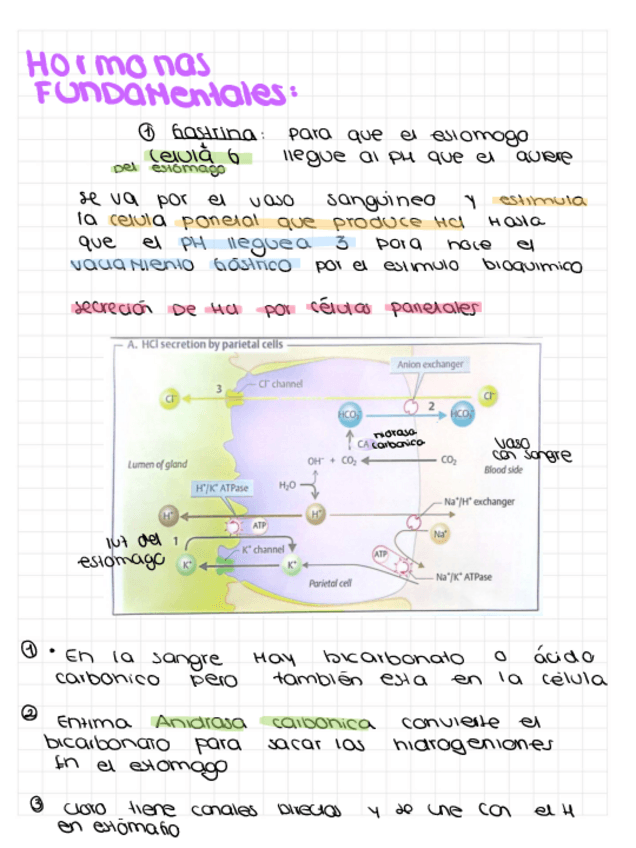 Hormonas
FUNDAMentales:
① Gastrina: para que el estomago
celula G llegue al PH que el quiere
Del estómago
se va por el vaso sanguineo y estimula
la celula parietal que produce Hcl Hasta
que el PH llegue a 3 para hace el
vaciaMiento Gástrico por el estimulo bioquimico
secreción De Hcl por células parietales
A. HCl secretion by parietal cells
Anion exchanger
Cl⁻ channel
3
Cl⁻
Cl⁻
2
HCO₃⁻
HCO₃⁻
CA
Hidrasa
carbonica
vaso
con sangre
Lumen of gland
OH⁻ + CO₂
CO₂
Blood side
H⁺/K⁺ ATPase
H₂O
Na⁺/H⁺ exchanger
H⁺
H⁺
ATP
Na⁺
luz del
estomago
1
K⁺ channel
K⁺
K⁺
ATP
Parietal cell
Na⁺/K⁺ ATPase
① • En la sangre Hay bicarbonato o ácido
carbonico pero también esta en la célula
② Entima Anidrasa carbonica convierte el
bicarbonato para sacar los hidrogeniones
En el estomago
③ cloro tiene canales Directos y se une con el H
en estómaño